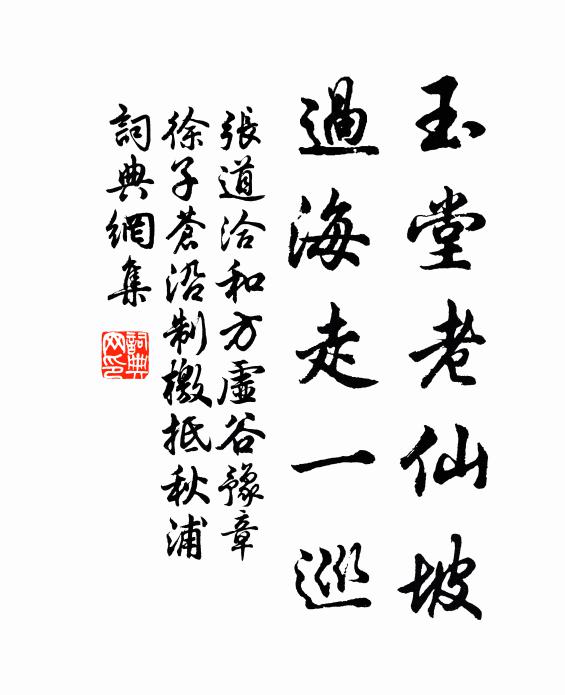 玉堂老仙坡
過海走一巡
張道洽和方虛谷豫章
徐子蒼沿制檄抵秋浦
詞典網集
詞典網印